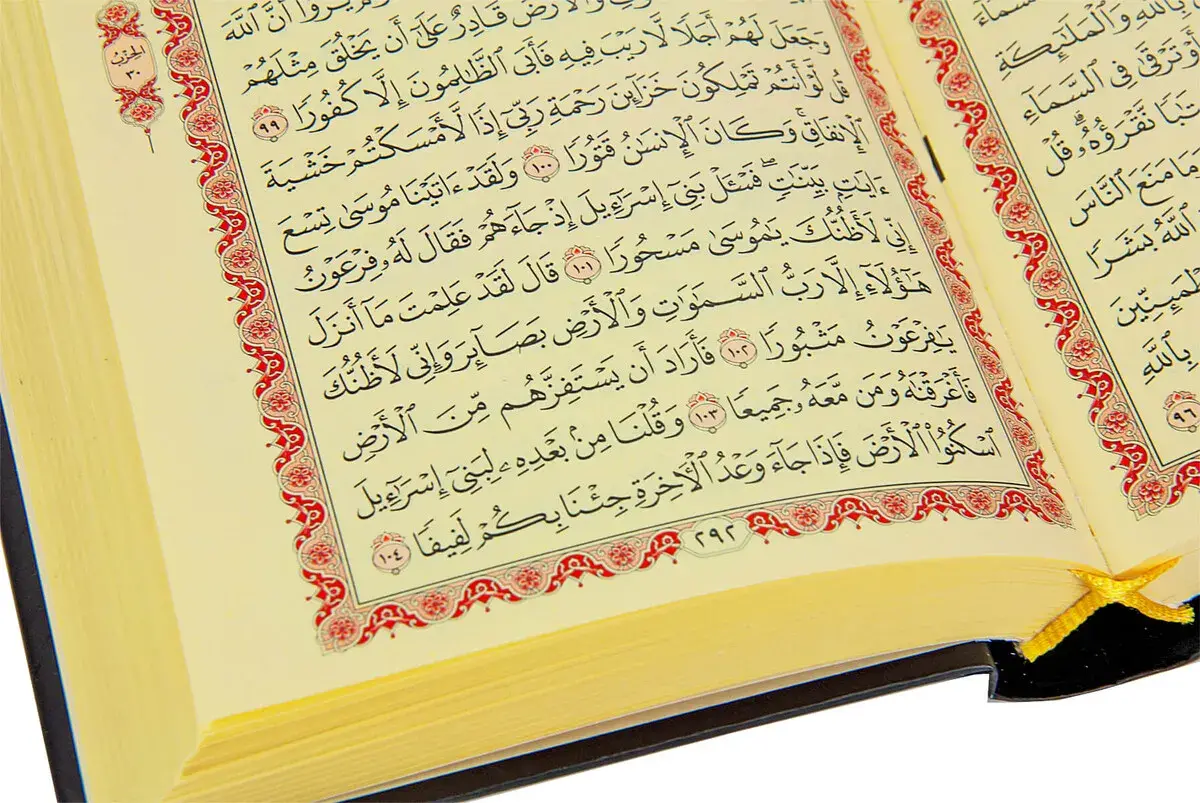 بِٱللَّهِ وَٱلْمَلَٰٓئِكَةِ
أَوْ تَرْقَىٰ فِى ٱلسَّمَآءِ
نَّقْرَؤُهُۥۗ قُلْ
مَنَعَ ٱلنَّاسَ
ٱللَّهُ بَشَرًا
بِٱللَّهِ
٩٦
أَنَّ ٱللَّهَ
وَٱلْأَرْضَ قَادِرٌ عَلَىٰٓ أَن يَخْلُقَ مِثْلَهُمْ
وَجَعَلَ لَهُمْ أَجَلًا لَّا رَيْبَ فِيهِ فَأَبَى ٱلظَّٰلِمُونَ إِلَّا كُفُورًا ٩٩
قُل لَّوْ أَنتُمْ تَمْلِكُونَ خَزَآئِنَ رَحْمَةِ رَبِّىٓ إِذًا لَّأَمْسَكْتُمْ خَشْيَةَ
ٱلْإِنفَاقِۚ وَكَانَ ٱلْإِنسَٰنُ قَتُورًا ١٠٠ وَلَقَدْ ءَاتَيْنَا مُوسَىٰ تِسْعَ
ءَايَٰتٍۭ بَيِّنَٰتٍۖ فَسْـَٔلْ بَنِىٓ إِسْرَٰٓءِيلَ إِذْ جَآءَهُمْ فَقَالَ لَهُۥ فِرْعَوْنُ
إِنِّى لَأَظُنُّكَ يَٰمُوسَىٰ مَسْحُورًا ١٠١ قَالَ لَقَدْ عَلِمْتَ مَآ أَنزَلَ
هَٰٓؤُلَآءِ إِلَّا رَبُّ ٱلسَّمَٰوَٰتِ وَٱلْأَرْضِ بَصَآئِرَ وَإِنِّى لَأَظُنُّكَ
يَٰفِرْعَوْنُ مَثْبُورًا ١٠٢ فَأَرَادَ أَن يَسْتَفِزَّهُم مِّنَ ٱلْأَرْضِ
فَأَغْرَقْنَٰهُ وَمَن مَّعَهُۥ جَمِيعًا ١٠٣ وَقُلْنَا مِنۢ بَعْدِهِۦ لِبَنِىٓ إِسْرَٰٓءِيلَ
ٱسْكُنُوا۟ ٱلْأَرْضَ فَإِذَا جَآءَ وَعْدُ ٱلْءَاخِرَةِ جِئْنَا بِكُمْ لَفِيفًا ١٠٤
٢٩٢
الحِزْبُ
٣٠